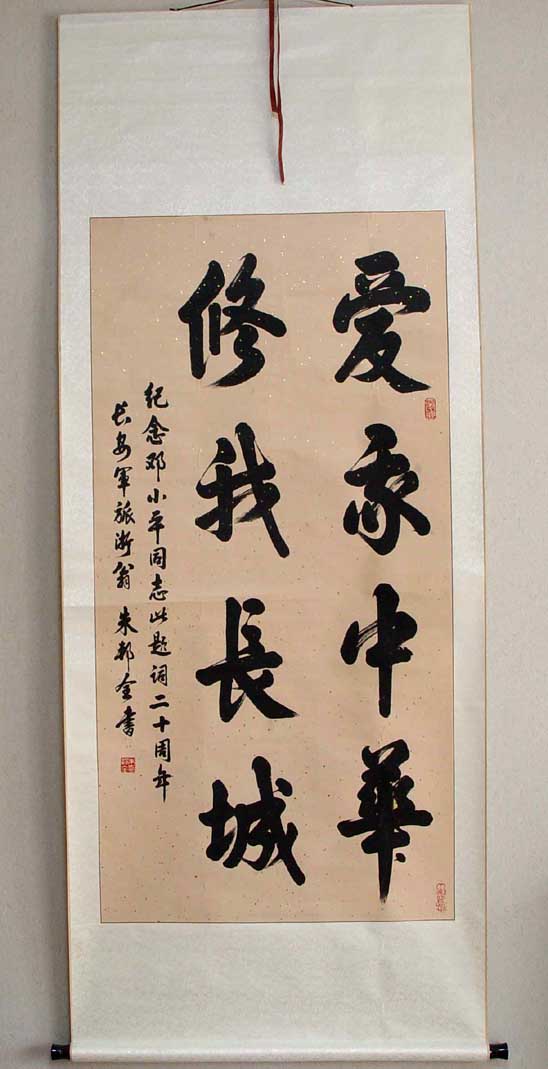 爱我中華
修我長城
纪念邓小平同志此题词二十周年
长安军旅浙翁 朱邦全書